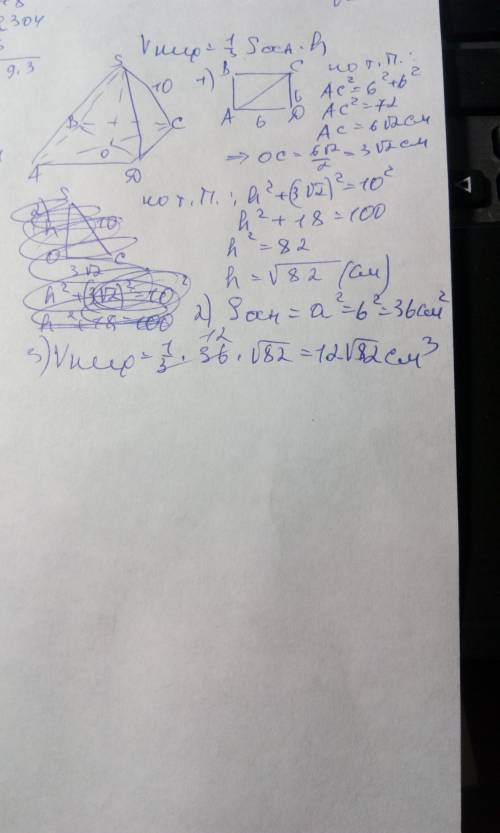 2304
9.3
Vпир = 1/3 Sосн · h
S
10
B
C
O
A
D
1) B C
6
A 6 D
по т. П.:
AC² = 6² + 6²
AC² = 72
AC = 6√2 см
=> OC = 6√2/2 = 3√2 см
по т. П.: h² + (3√2)² = 10²
h² + 18 = 100
h² = 82
h = √82 (см)
S
h 10
O C
3√2
h² + (3√2)² = 10²
h² + 18 = 100
2) Sосн = a² = 6² = 36 см²
12
3) Vпир = 1/3 · 36 · √82 = 12√82 см³